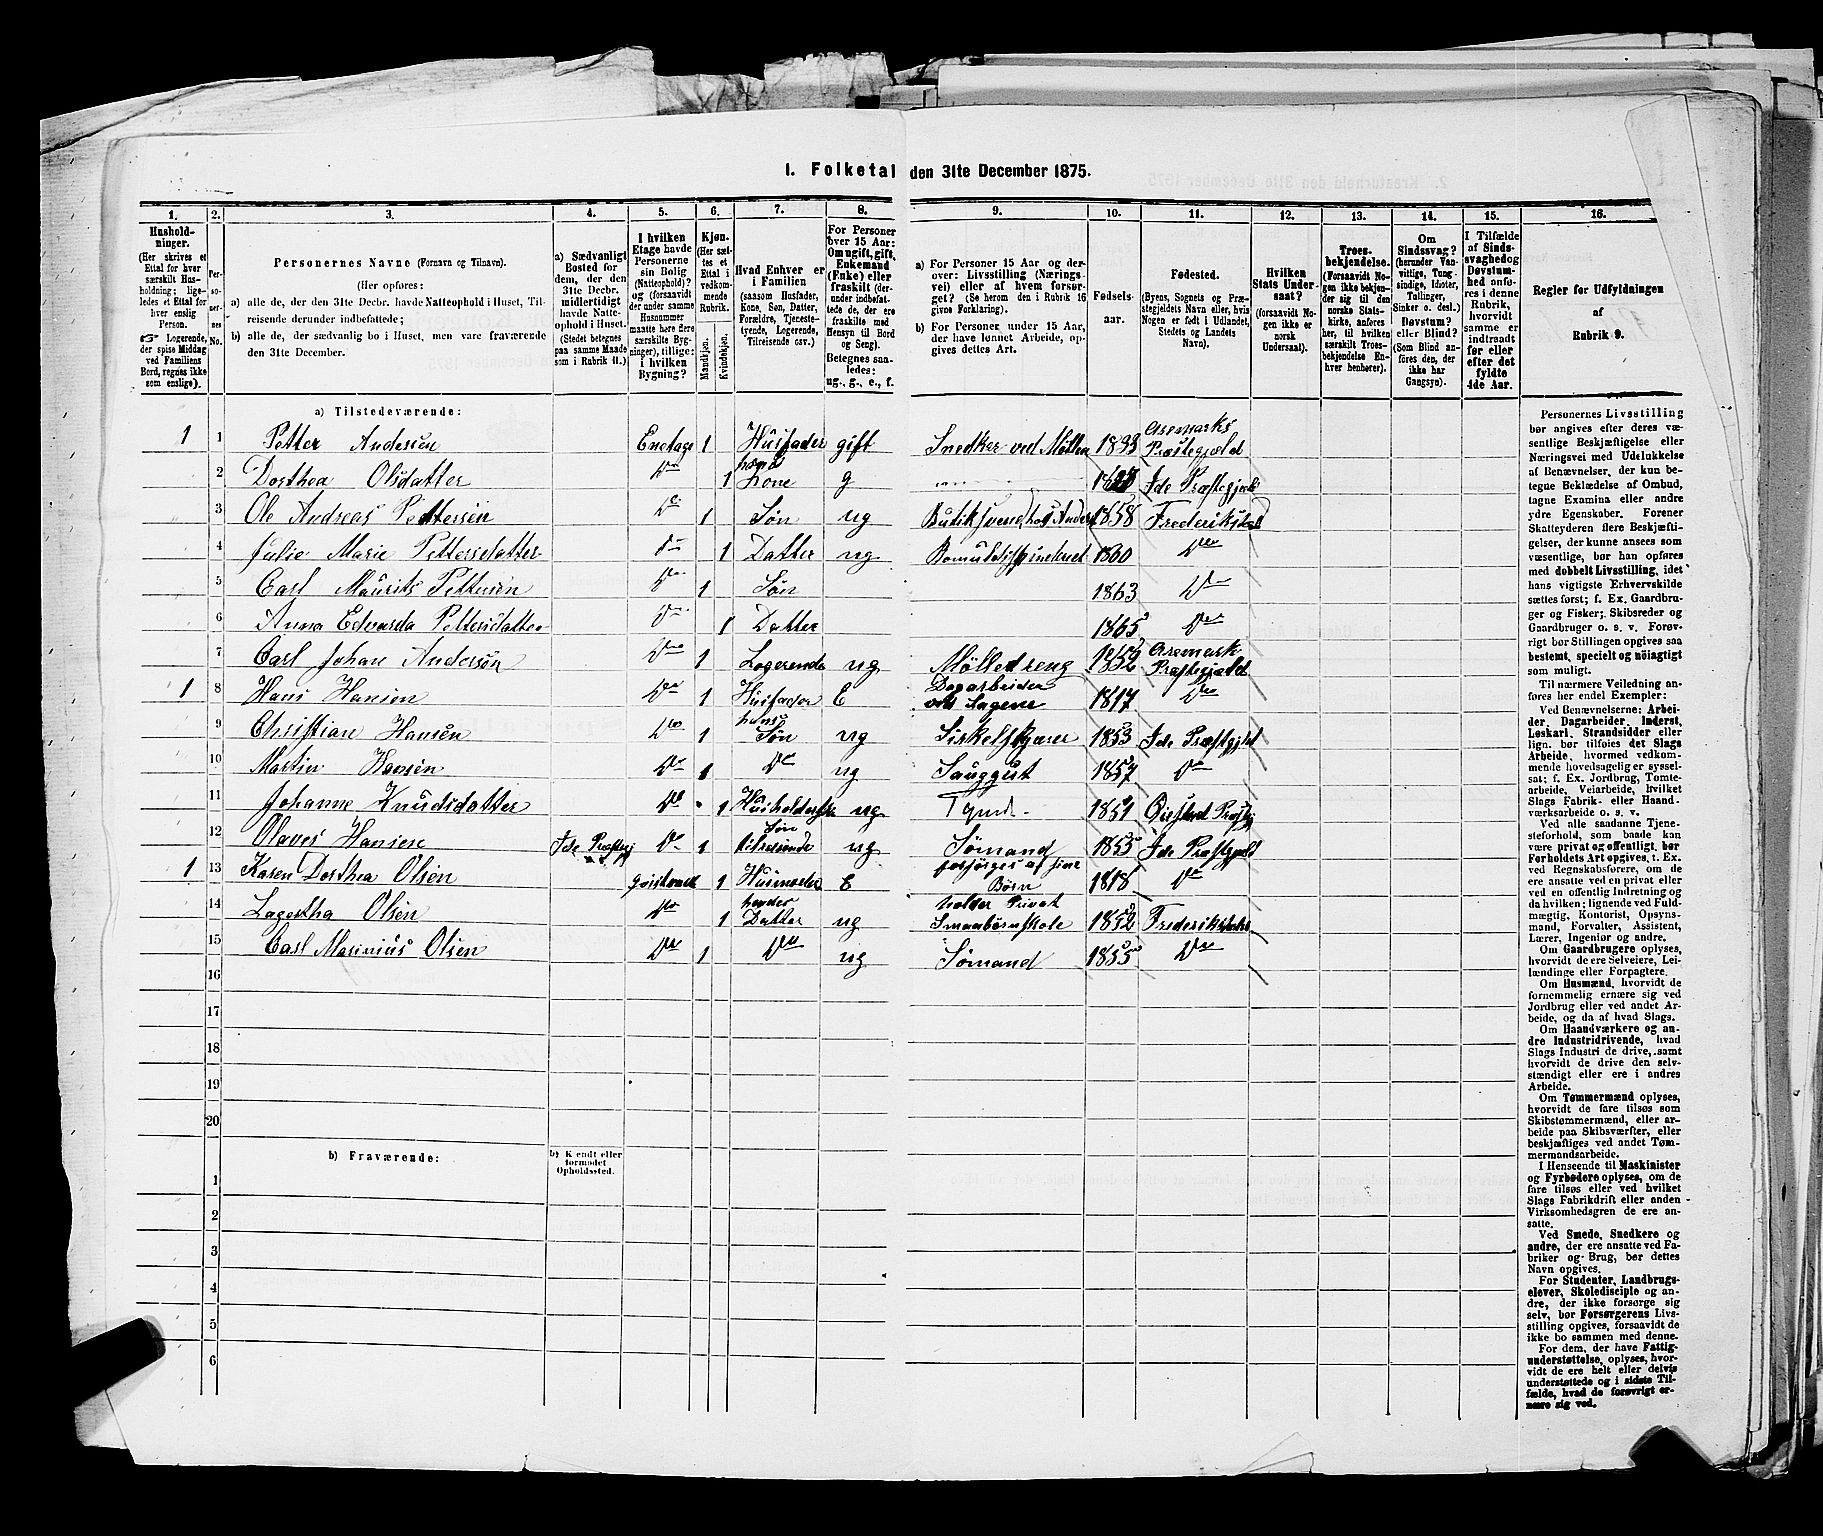 I. Folketal den 31te December 1875.
1. 2. 3. 4. 5. 6. 7. 8. 9. 10. 11. 12. 13. 14. 15. 16.
Husholdninger. (Her skrives et Ettal for hver særskilt Husholdning; ligeledes et Ettal for hver enslig Person. Logerende, der spise Middag ved Familiens Bord, regnes ikke som enslige).
Personernes No.
Personernes Navne (Fornavn og Tilnavn).
(Her opføres:
a) alle de, der den 31te Decbr. havde Natteophold i Huset, Tilreisende derunder indbefattede;
b) alle de, der sædvanlig bo i Huset, men vare fraværende den 31te December.
a) Sædvanligt Bosted for dem, der den 31te Decbr. midlertidigt havde Natteophold i Huset. (Stedet betegnes paa samme Maade som i Rubrik 11.)
I hvilken Etage havde Personerne sin Bolig (Natteophold)? og (forsaavidt der under samme Husnummer maatte høre flere særskilte Bygninger), tillige: i hvilken Bygning?
Kjøn. (Her sættes et Ettal i vedkommende Rubrik. Mandkjøn. Kvindekjøn.
Hvad Enhver er i Familien (saasom Husfader, Kone, Søn, Datter, Forældre, Tjenestetyende, Logerende, Tilreisende osv.)
For Personer over 15 Aar: Om ugift, gift, Enkemand (Enke) eller fraskilt (derunder indbefattede de, der ere fraskilte med Hensyn til Bord og Seng). Betegnes saaledes: ug., g., e., f.
a) For Personer 15 Aar og derover: Livsstilling (Næringsvei) eller af hvem forsørget? (Se herom den i Rubrik 16 givne Forklaring).
b) For Personer under 15 Aar, der have lønnet Arbeide, opgives dettes Art.
Fødselsaar.
Fødested. (Byens, Sognets og Præstegjeldets Navn eller, hvis Nogen er født i Udlandet, Stedets og Landets Navn).
Hvilken Stats Undersaat? (forsaavidt Nogen ikke er norsk Undersaat).
Troesbekjendelse. (Forsaavidt Nogen ikke bekjender sig til den norske Statskirke, anføres her, til hvilken særskilt Troesbekjendelse Enhver henhører).
Om Sindssvag? (herunder Vanvittige, Tungsindige, Idioter, Tullinger, Sinker o. desl.) Døvstum? eller Blind? (Som Blind anføres den, der ikke har Gangsyn).
I Tilfælde af Sindssvaghed og Døvstumhed anføres i denne Rubrik, hvorvidt samme er indtraadt før eller efter det fyldte 4de Aar.
Regler for Udfyldningen af Rubrik 9.
a) Tilstedeværende:
1 1 Petter Andersen Enetage 1 Husfader gift Snedker ved Møllen 1833 Aremarks Præstegjæld
2 Dorthea Olsdatter Do 1 hans Kone g Ide Præstegjæld
3 Ole Andreas Pettersen Do 1 Søn ug Butiksvend hos 1858 Frederikshald
4 Julie Marie Pettersdatter Do 1 Datter ug 1860 Do
5 Carl Maurits Pettersen Do 1 Søn 1863 Do
6 Anna Edvarda Pettersdatter Do 1 Datter 1865 Do
7 Carl Johan Andersen Do 1 Logerende ug Mølledreng Aremark Præstegjæld
1 8 Hans Hansen Do 1 Husfader E Dagarbeider ved Sagene 1817 Do
9 Christian Hansen Do 1 hans Søn ug Sirkelskjærer 1853 Ide Præstgjld
10 Martin Hansen Do 1 Do ug 1857 Do
11 Johanne Knudsdatter Do 1 ug Tyende 1851
12 Olaves Hansen Ide Præstegj Do 1 Søn tilreisende ug Sømand 1855 Ide Præstgjæld
1 13 Karen Dorthea Olsen 1 Husmoder E forsørges af sine Børn 1818 Do
14 Lagertha Olsen Do 1 hendes Datter ug holder Privat Smaabørnskole 1852 Frederikshald
15 Carl Marinius Olsen Do 1 Do ug Sømand 1855 Do
16
17
18
19
20
b) Fraværende:
b) Kjendt eller formodet Opholdssted.
1
2
3
4
5
6
Personernes Livsstilling
bør angives efter deres væ-
sentlige Beskjæftigelse eller
Næringsvei med Udelukkelse
af Benævnelser, der kun be-
tegne Beklædelse af Ombud,
tagne Examina eller andre
ydre Egenskaber. Forener
Skatteyderen flere Beskjæfti-
gelser, der kunne ansees som
væsentlige, bør han opføres
med dobbelt Livsstilling, idet
hans vigtigste Erhvervskilde
sættes først; f. Ex. Gaardbru-
ger og Fisker; Skibsreder og
Gaardbruger o. s. v. Forøv-
rigt bør Stillingen opgives saa
bestemt, specielt og nöiagtigt
som muligt.
Til nærmere Veiledning an-
føres her endel Exempler:
Ved Benævnelserne: Arbei-
der, Dagarbeider, Inderst,
Løskarl, Strandsidder eller
lign. bør tilføies det Slags
Arbeide, hvormed vedkom-
mende hovedsagelig er syssel-
sat; f. Ex. Jordbrug, Tomte-
arbeide, Veiarbeide, hvilket
Slags Fabrik- eller Haand-
værksarbeide o. s. v.
Ved alle saadanne Tjene-
steforhold, som baade kan
være privat og offentligt, bør
Forholdets Art opgives, t. Ex.
ved Regnskabsførere, om de
ere ansatte ved en privat eller
ved en offentlig Indretning og
da hvilken; lignende ved Fuld-
mægtig, Kontorist, Opsyns-
mand, Forvalter, Assistent,
Lærer, Ingeniør og andre.
Om Gaardbrugere oplyses,
hvorvidt de ere Selveiere, Lei-
lændinge eller Forpagtere.
Om Husmænd, hvorvidt de
fornemmelig ernære sig ved
Jordbrug eller ved andet Ar-
beide, og da af hvad Slags.
Om Haandværkere og an-
dre Industridrivende, hvad
Slags Industri de drive, samt
hvorvidt de drive den selv-
stændigt eller ere i andres
Arbeide.
Om Tømmermænd oplyses,
hvorvidt de fare tilsøs som
Skibstømmermænd, eller ar-
beide paa Skibsværfter, eller
beskjæftiges ved andet Tøm-
mermandsarbeide.
I Henseende til Maskinister
og Fyrbødere oplyses, om de
fare tilsøs eller ved hvilket
Slags Fabrikdrift eller anden
Virksomhedsgren de ere an-
satte.
Ved Smede, Snedkere og
andre, der ere ansatte ved Fa-
briker og Brug, bør dettes
Navn opgives.
For Studenter, Landbrugs-
elever, Skoledisciple og an-
dre, der ikke forsørge sig
selv, bør Forsørgerens Livs-
stilling opgives, forsaavidt de
ikke bo sammen med denne.
For dem, der have Fattig-
understøttelse, oplyses, hvor-
vidt de ere helt eller delvis
understøttede og i sidste Til-
fælde, hvad de forøvrigt er-
nære sig ved.